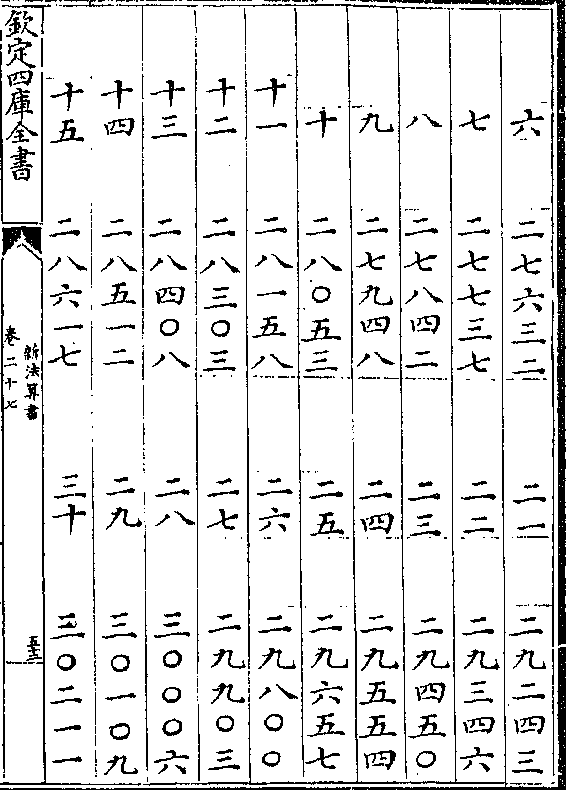 六 二七六三二 二一 二九二四三
七 二七七三七 二二 二九三四六
八 二七八四二 二三 二九四五〇
九 二七九四八 二四 二九五五四
十 二八〇五三 二五 二九六五七
十一 二八一五八 二六 二九八〇〇
十二 二八三〇三 二七 二九九〇三
十三 二八四〇八 二八 三〇〇〇六
十四 二八五一二 二九 三〇一〇九
十五 二八六一七 三十 三〇二一一
欽定四庫全書
新法算書
卷二十七